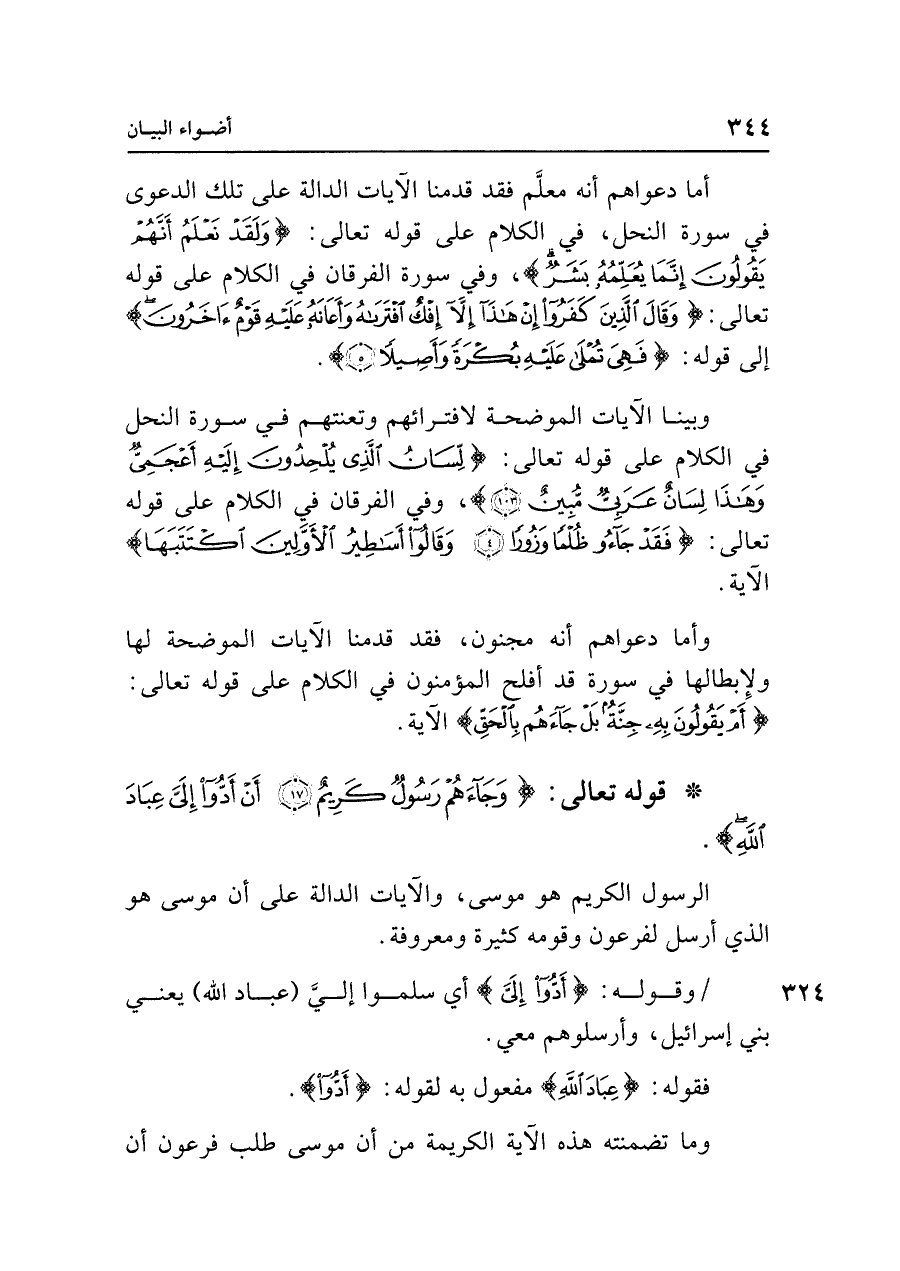 ٣٤٤ أضـواء البيـان
أما دعواهم أنه معلَّم فقد قدمنا الآيات الدالة على تلك الدعوى
في سورة النحل، في الكلام على قوله تعالى: ﴿وَلَقَدْ نَعْلَمُ أَنَّهُمْ
يَقُولُونَ إِنَّمَا يُعَلِّمُهُۥ بَشَرٌۗ﴾، وفي سورة الفرقان في الكلام على قوله
تعالى: ﴿وَقَالَ ٱلَّذِينَ كَفَرُوٓا۟ إِنْ هَـٰذَآ إِلَّآ إِفْكٌ ٱفْتَرَىٰهُ وَأَعَانَهُۥ عَلَيْهِ قَوْمٌ ءَاخَرُونَۖ﴾
إلى قوله: ﴿فَهِىَ تُمْلَىٰ عَلَيْهِ بُكْرَةً وَأَصِيلًا ۝٥﴾.
وبينـا الآيات الموضحـة لافتـرائهم وتعنتهـم فـي سـورة النحل
في الكلام على قوله تعالى: ﴿لِّسَانُ ٱلَّذِى يُلْحِدُونَ إِلَيْهِ أَعْجَمِىٌّ
وَهَـٰذَا لِسَانٌ عَرَبِىٌّ مُّبِينٌ ۝١٠٣﴾، وفي الفرقان في الكلام على قوله
تعالى: ﴿فَقَدْ جَآءُو ظُلْمًا وَزُورًا ۝٤ وَقَالُوٓا۟ أَسَـٰطِيرُ ٱلْأَوَّلِينَ ٱكْتَتَبَهَا﴾
الآية.
وأما دعواهم أنه مجنون، فقد قدمنا الآيات الموضحة لها
ولإبطالها في سورة قد أفلح المؤمنون في الكلام على قوله تعالى:
﴿أَمْ يَقُولُونَ بِهِۦ جِنَّةٌۢ بَلْ جَآءَهُم بِٱلْحَقِّ﴾ الآية.
* قوله تعالى: ﴿وَجَآءَهُمْ رَسُولٌ كَرِيمٌ ۝١٧ أَنْ أَدُّوٓا۟ إِلَىَّ عِبَادَ
ٱللَّهِۖ﴾.
الرسول الكريم هو موسى، والآيات الدالة على أن موسى هو
الذي أرسل لفرعون وقومه كثيرة ومعروفة.
٣٢٤ / وقـولـه: ﴿أَدُّوٓا۟ إِلَىَّ﴾ أي سلمـوا إلـيَّ (عبـاد الله) يعنـي
بني إسرائيل، وأرسلوهم معي.
فقوله: ﴿عِبَادَ ٱللَّهِ﴾ مفعول به لقوله: ﴿أَدُّوٓا۟﴾.
وما تضمنته هذه الآية الكريمة من أن موسى طلب فرعون أن